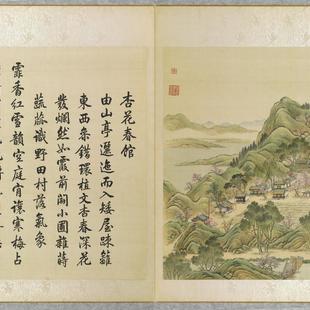 杏花春館
由山亭邐迤而入矮屋疎籬
東西參錯環植文杏春深花
發爛然如霞前闢小圃雜蒔
蔬蓏識野田村落氣象
霏香紅雪韻空庭肯讓寒梅占